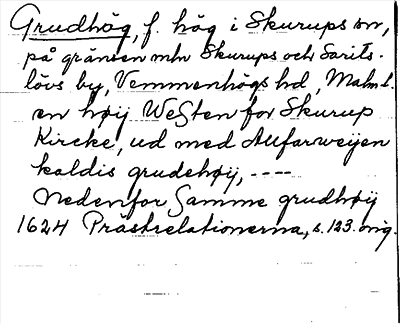 Grudhög, f. hög i Skurups sn,
på gränsen mln Skurups och Sarits-
lövs by, Vemmenhögs hd, Malm. l.
en høij Weſten for Skurup
Kircke, ud med Allfarweijen
kaldis grudehøij, ----
Nedenfor Samme grudhøij
1624 Prästrelationerna, s. 123. orig.